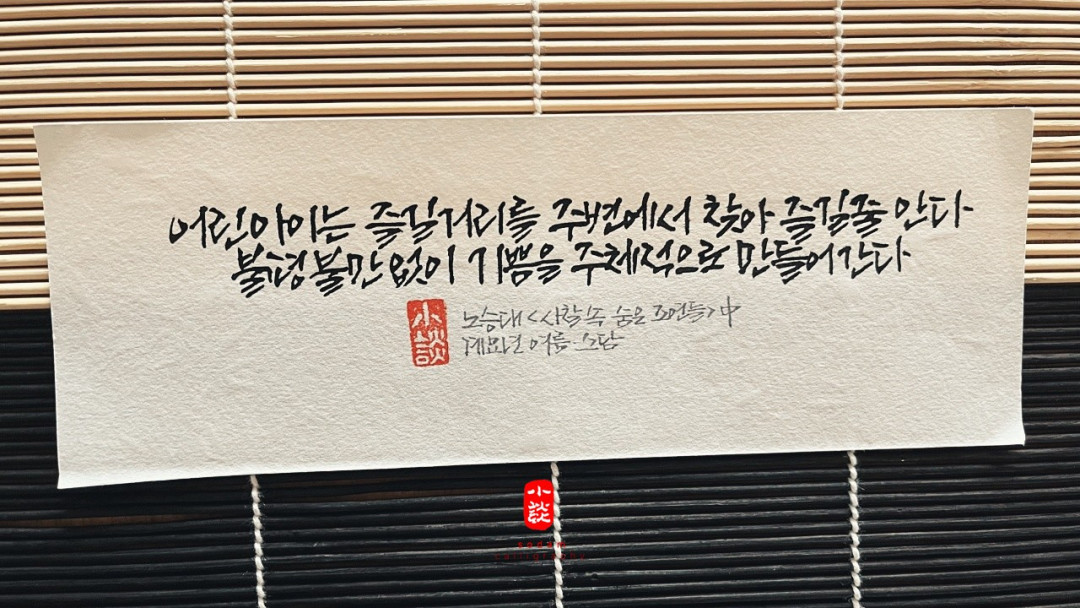 어린아이는 즐길거리를 주변에서 찾아 즐길줄 안다
불평불만 없이 기쁨을 주체적으로 만들어간다
小談
노승대 <사찰 속 숨은 조연들> 中
계묘년 여름 소담
小談
sodam
calligraphy